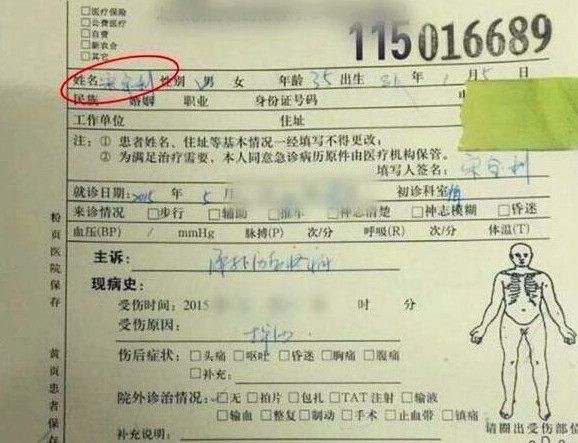 □医疗保险
□公费医疗
□自费
□新农合
□其它
115016689
姓名 性别 男 女 年龄 35 出生 年 1 月 5 日
民族 婚姻 职业 身份证号码
工作单位 住址
注：① 患者姓名、住址等基本情况一经填写不得更改；
② 为满足治疗需要，本人同意急诊病历原件由医疗机构保管。
填写人签名：
就诊日期：2015 年 5 月 初诊科室
来诊情况 □步行 □辅助 □推车 □神志清楚 □神志模糊 □昏迷
血压(BP) / mmHg 脉搏(P) 次/分 呼吸(R) 次/分 体温(T)
主诉：
现病史：
受伤时间：2015 时 分
受伤原因：
伤后症状：□头痛 □呕吐 □昏迷 □胸痛 □腹痛
□补充：
院外诊治情况：□无 □拍片 □包扎 □TAT注射 □输液
□输血 □整复 □制动 □手术 □止血带 □镇痛
补充说明：
请圈出受伤部位
粉页医院保存
黄页患者保存